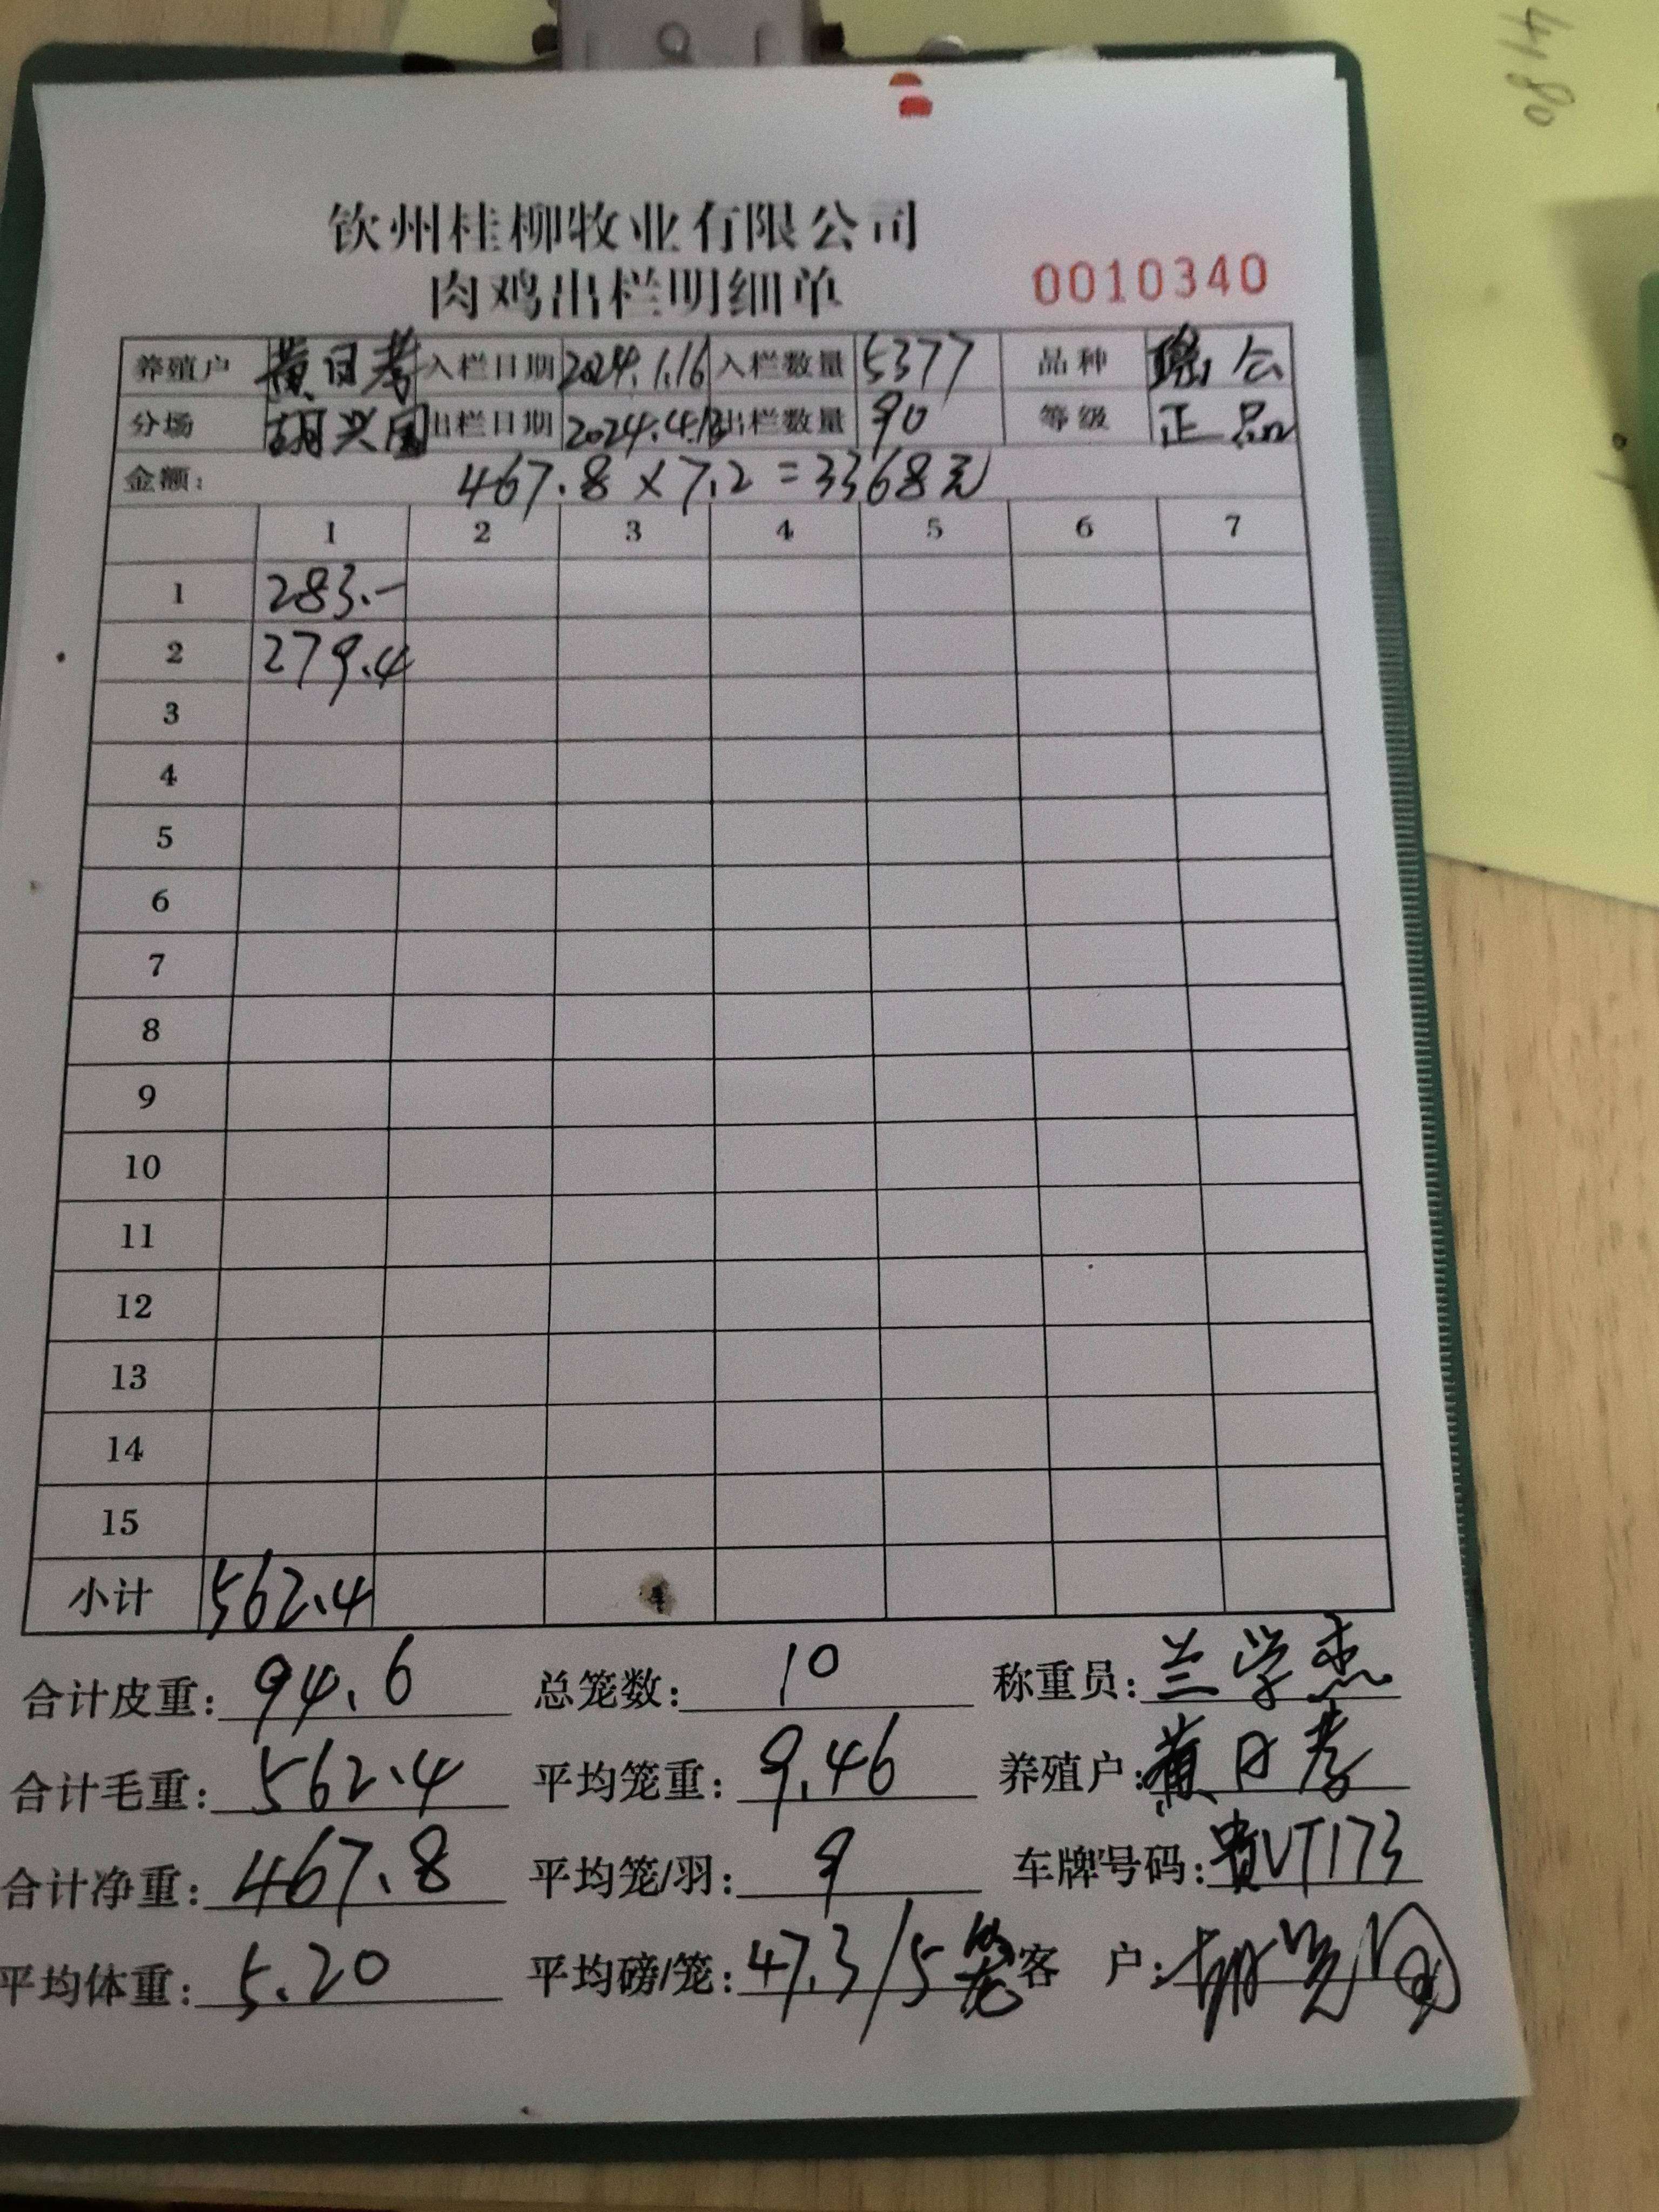 4180
钦州桂柳牧业有限公司
肉鸡出栏明细单 0010340
养殖户 黄日考 入栏日期 2024.1.16 入栏数量 5377 品种 瑶公
分场 胡兴国 出栏日期 2024.4.13 出栏数量 90 等级 正品
金额: 467.8×7.2=3368元
1 2 3 4 5 6 7
1 283.-
2 279.4
3
4
5
6
7
8
9
10
11
12
13
14
15
小计 562.4
合计皮重: 94.6 总笼数: 10 称重员: 兰学杰
合计毛重: 562.4 平均笼重: 9.46 养殖户: 黄日考
合计净重: 467.8 平均笼/羽: 9 车牌号码: 贵VT173
平均体重: 5.20 平均磅/笼: 47.3/5笼 客 户: